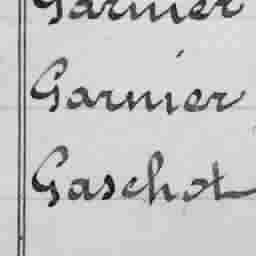 Garnier
Garnier
Gaschot